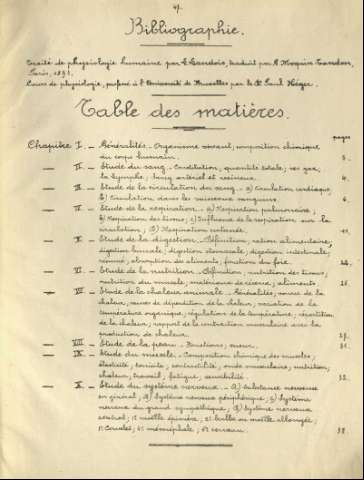 41.
Bibliographie.
Traité de physiologie humaine par L. Landois, traduit par G. Moquin-Tandon,
Paris, 1893.
Cours de physiologie, professé à l'Université de Bruxelles par le Dr Paul Héger.
Table des matières.
pages
Chapitre I. — Généralités. Organisme vivant, composition chimique
du corps humain. 3.
— II — Étude du sang. — Constitution, quantité totale; ses gaz;
la lymphe; sang artériel et veineux. 4.
— III — Étude de la circulation du sang. — a) Circulation cardiaque;
b) Circulation dans les vaisseaux sanguins.
— IV — Étude de la respiration. — a) Respiration pulmonaire;
b) Respiration des tissus; c) Influence de la respiration sur la
circulation; d) Respiration cutanée.
— V — Étude de la digestion. — Définition, ration alimentaire;
digestion buccale; digestion stomacale; digestion intestinale;
résumé; absorption des aliments, fonctions du foie.
— VI — Étude de la nutrition. — Définition; nutrition des tissus;
nutrition du muscle, matériaux de réserve, aliments
— VII — Étude de la chaleur animale. — Généralités; causes de la
chaleur, causes de déperdition de la chaleur; variation de la
température organique; régulation de la température; répartition
de la chaleur; rapport de la contraction musculaire avec la
production de chaleur. 29.
— VIII — Étude de la peau. — Fonctions; sueur. 31.
— IX — Étude du muscle. — Composition chimique des muscles;
élasticité, tonicité, contractilité; onde musculaire; nutrition;
chaleur; travail; fatigue; sensibilité 32.
— X — Étude du système nerveux. — a) Substance nerveuse
en général; b) Système nerveux périphérique; c) Système
nerveux du grand sympathique; d) Système nerveux
central; 1° moelle épinière; 2° bulbe ou moelle allongée;
4° cerveau 38.